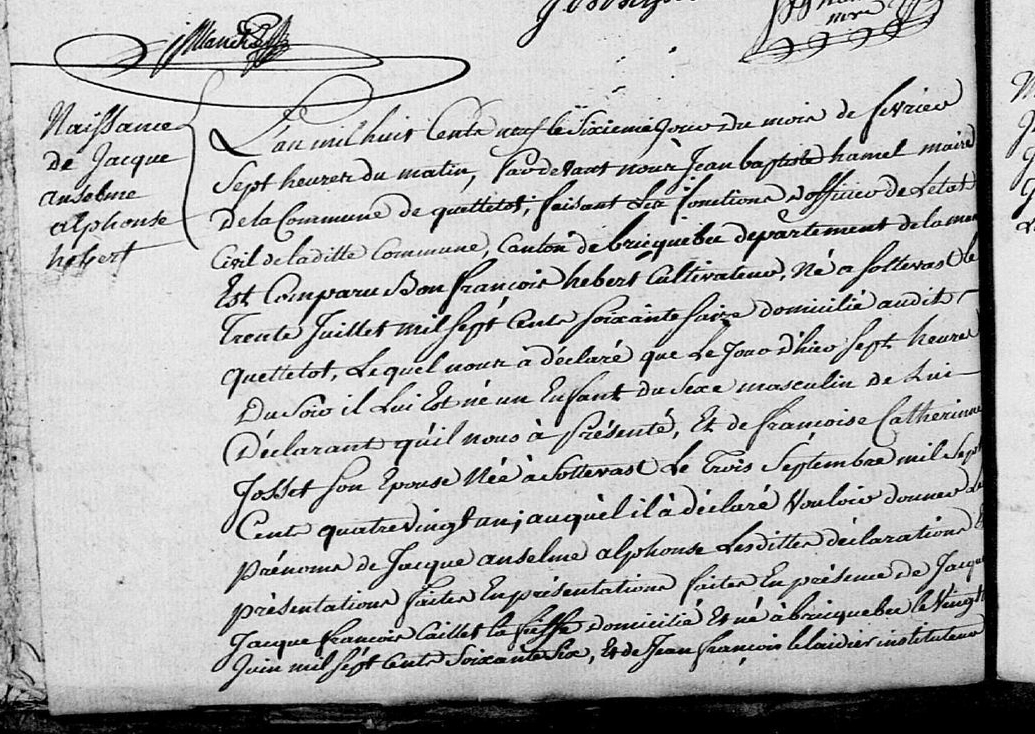 Naissance
de Jacque
anselme
alphonse
hebert
L'an mil huit Cents neuf le Sixieme Jour du mois de fevrier
Sept heures du matin, Pardevant nous Jean baptiste hamel maire
de la Commune de quettetot, faisant les fonctions d'officier de L'etat
Civil de laditte Commune, Canton de bricquebec departement de la man
Est Comparu Bon françois hebert Cultivateur, Né a sottevast le
Trente Juillet mil sept Cents soixante saize domicilié audit
quettetot, Lequel nous à déclaré que Le Jour D'hier sept heures
Du Soir il Lui Est né un Enfant du Sexe masculin de Lui
Déclarant qu'il nous à Présenté, Et de françoise Catherinne
Josset son Epouse Née à Sottevast Le Trois Septembre mil Sept
Cents quatre Vingt un; auquel il à déclaré Vouloir donner Les
prénoms de Jacque anselme alphonse Lesdittes déclarations Et
présentations faites En présentations faites En présence de Jacque
Jacque françois Caillet la fieffe domicilié Et né à bricquebec le Vingt
Juin mil sept Cents Soixante Six, Et de Jean françois instituteur